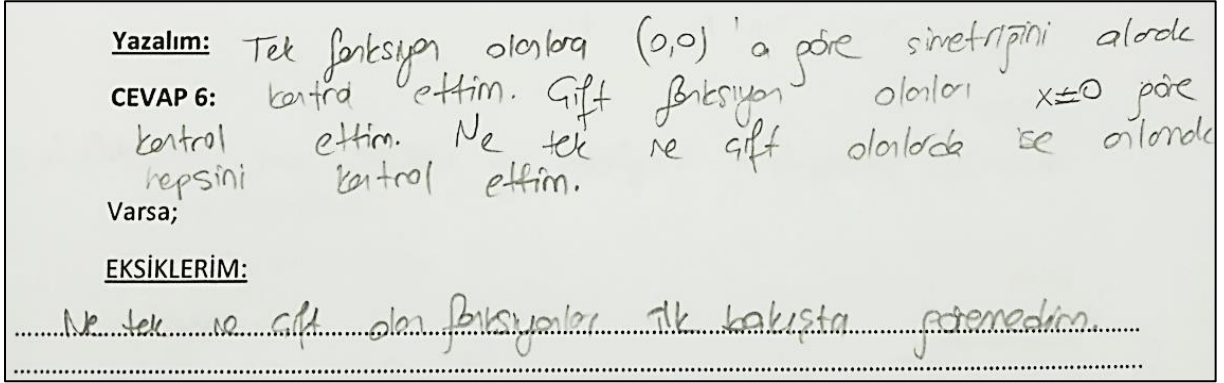 Yazalım: Tek fonksiyon olanlara (0,0) 'a göre simetriğini alarak
CEVAP 6: kontrol ettim. Çift fonksiyon olanları x=0 göre
kontrol ettim. Ne tek ne çift olanlarda ise
hepsini kontrol ettim.
Varsa;
EKSİKLERİM:
Ne tek ne çift olan fonksiyonları ilk bakışta göremedim.